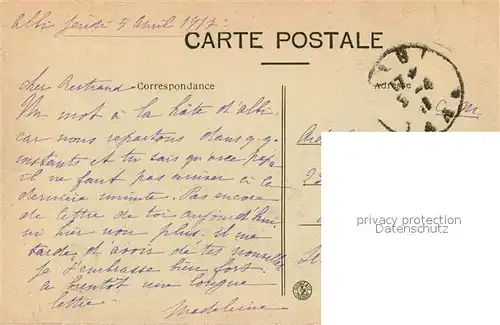 Albi Jeudi 5 Avril 1917.
CARTE POSTALE
Correspondance
Adresse
Cher Bertrand
Un mot à la hâte d'Albi
car nous repartons dans q.q.
instants et tu sais qu'avec papa
il ne faut pas arriver à la
dernière minute. Pas encore
de lettre de toi aujourd'hui
ni hier non plus. il me
tarde d'avoir de tes nouvelles
je t'embrasse bien fort
à bientôt une longue
lettre.
Madeleine
privacy protection
oldthing.de